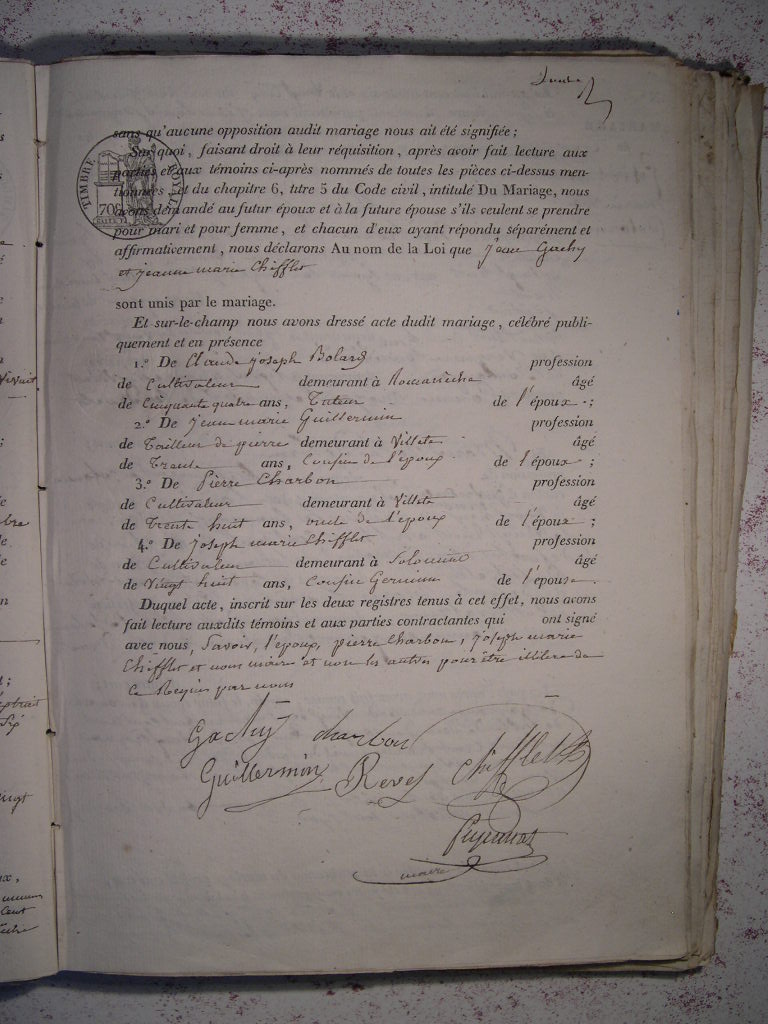 sans qu'aucune opposition audit mariage nous ait été signifiée ;
Sur quoi, faisant droit à leur réquisition, après avoir fait lecture aux
parties et aux témoins ci-après nommés de toutes les pièces ci-dessus men-
tionnées, et du chapitre 6, titre 5 du Code civil, intitulé Du Mariage, nous
avons demandé au futur époux et à la future épouse s'ils veulent se prendre
pour mari et pour femme, et chacun d'eux ayant répondu séparément et
affirmativement, nous déclarons Au nom de la Loi que jean Gachy
et jeanne marie Chifflet
TIMBRE ROYAL
70
sont unis par le mariage.
Et sur-le-champ nous avons dressé acte dudit mariage, célébré publi-
quement et en présence
1.º De Claude joseph Bolard profession
de Cultivateur demeurant à Romanèche âgé
de Cinquante quatre ans, Tuteur de l'époux ;
2.º De jean marie Guillermin profession
de Tailleur de pierre demeurant à Villette âgé
de Trente ans, Cousin de l'époux de l'époux ;
3.º De Pierre Charbon profession
de Cultivateur demeurant à Villette âgé
de Trente huit ans, oncle de l'époux de l'époux ;
4.º De joseph marie Chifflet profession
de Cultivateur demeurant à âgé
de Vingt huit ans, Cousin Germain de l'épouse.
Duquel acte, inscrit sur les deux registres tenus à cet effet, nous avons
fait lecture auxdits témoins et aux parties contractantes qui ont signé
avec nous, Savoir, l'époux, pierre Charbon, joseph marie
Chifflet et nous maire et non les autres pour être illitéré de
ce Requis par nous
Gachy charbon Chifflet
Guillermin Revel
maire